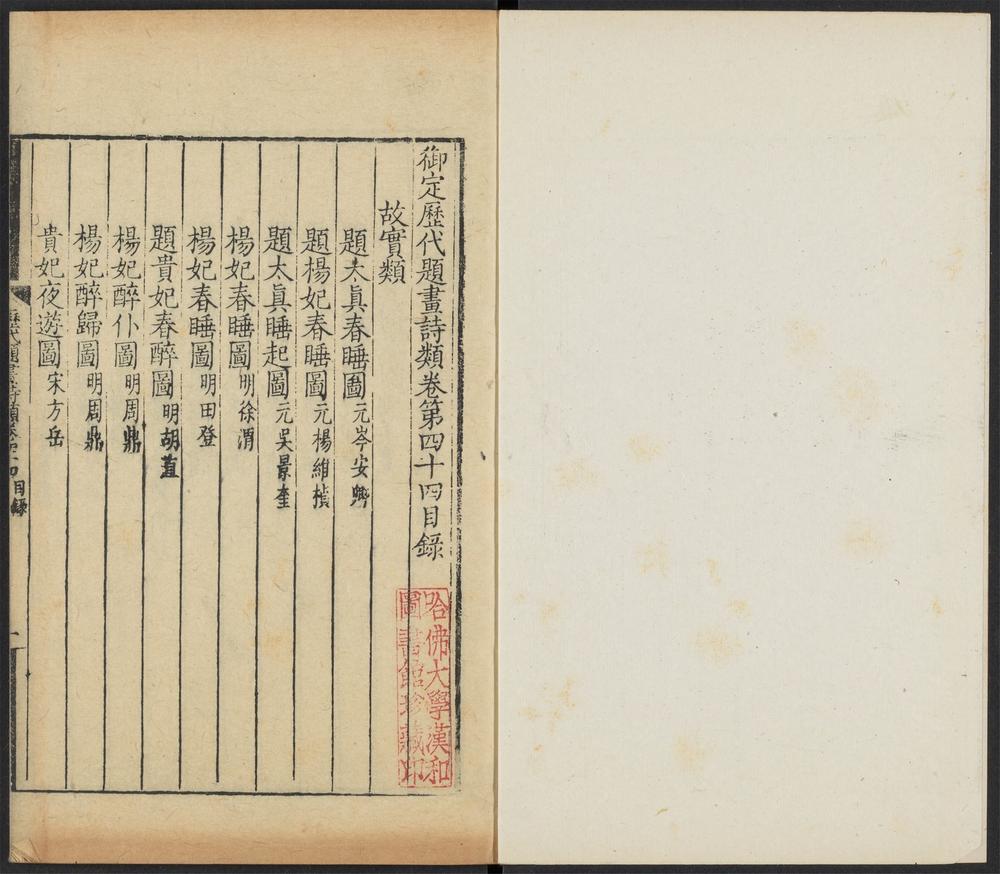 御定歷代題畫詩類卷第四十四目錄
故實類
題太眞春睡圖元岑安卿
題楊妃春睡圖元楊維楨
題太眞睡起圖元吳景奎
楊妃春睡圖明徐渭
楊妃春睡圖明田登
題貴妃春醉圖明胡直
楊妃醉仆圖明周鼎
楊妃醉歸圖明周鼎
貴妃夜遊圖宋方岳
歷代題畫詩類卷四十四目錄
一
哈佛大學漢和
圖書館珍藏印